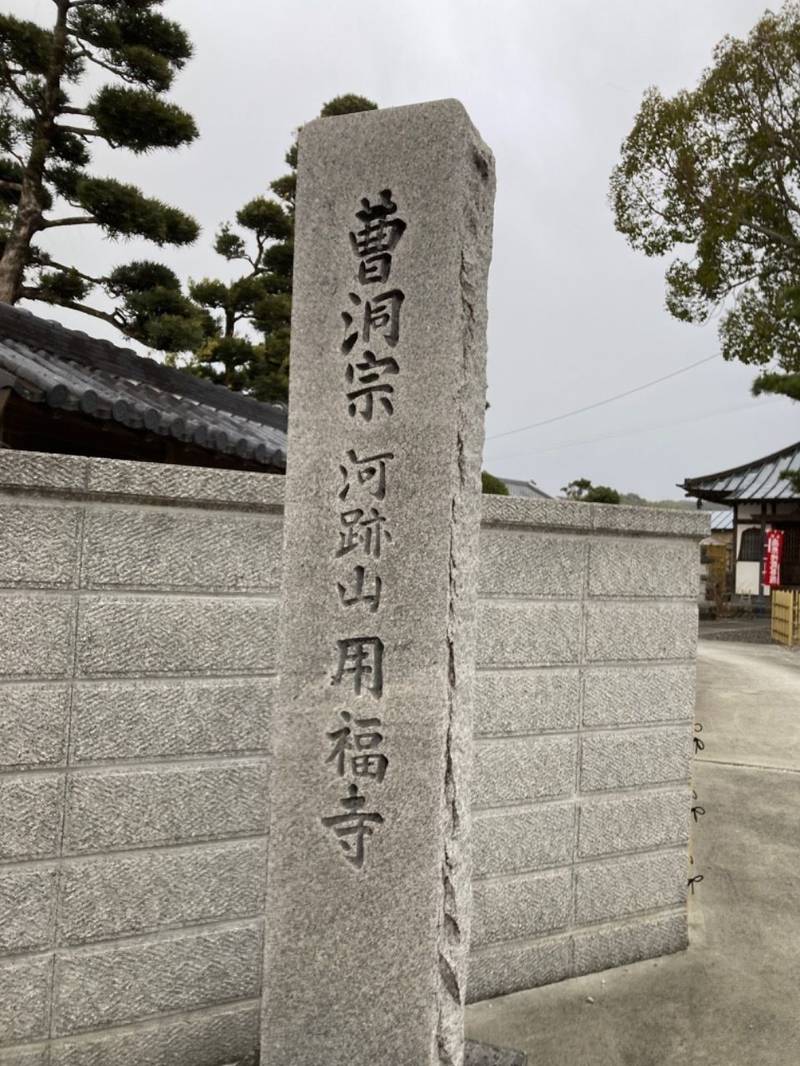 曹洞宗 河跡山 用福寺